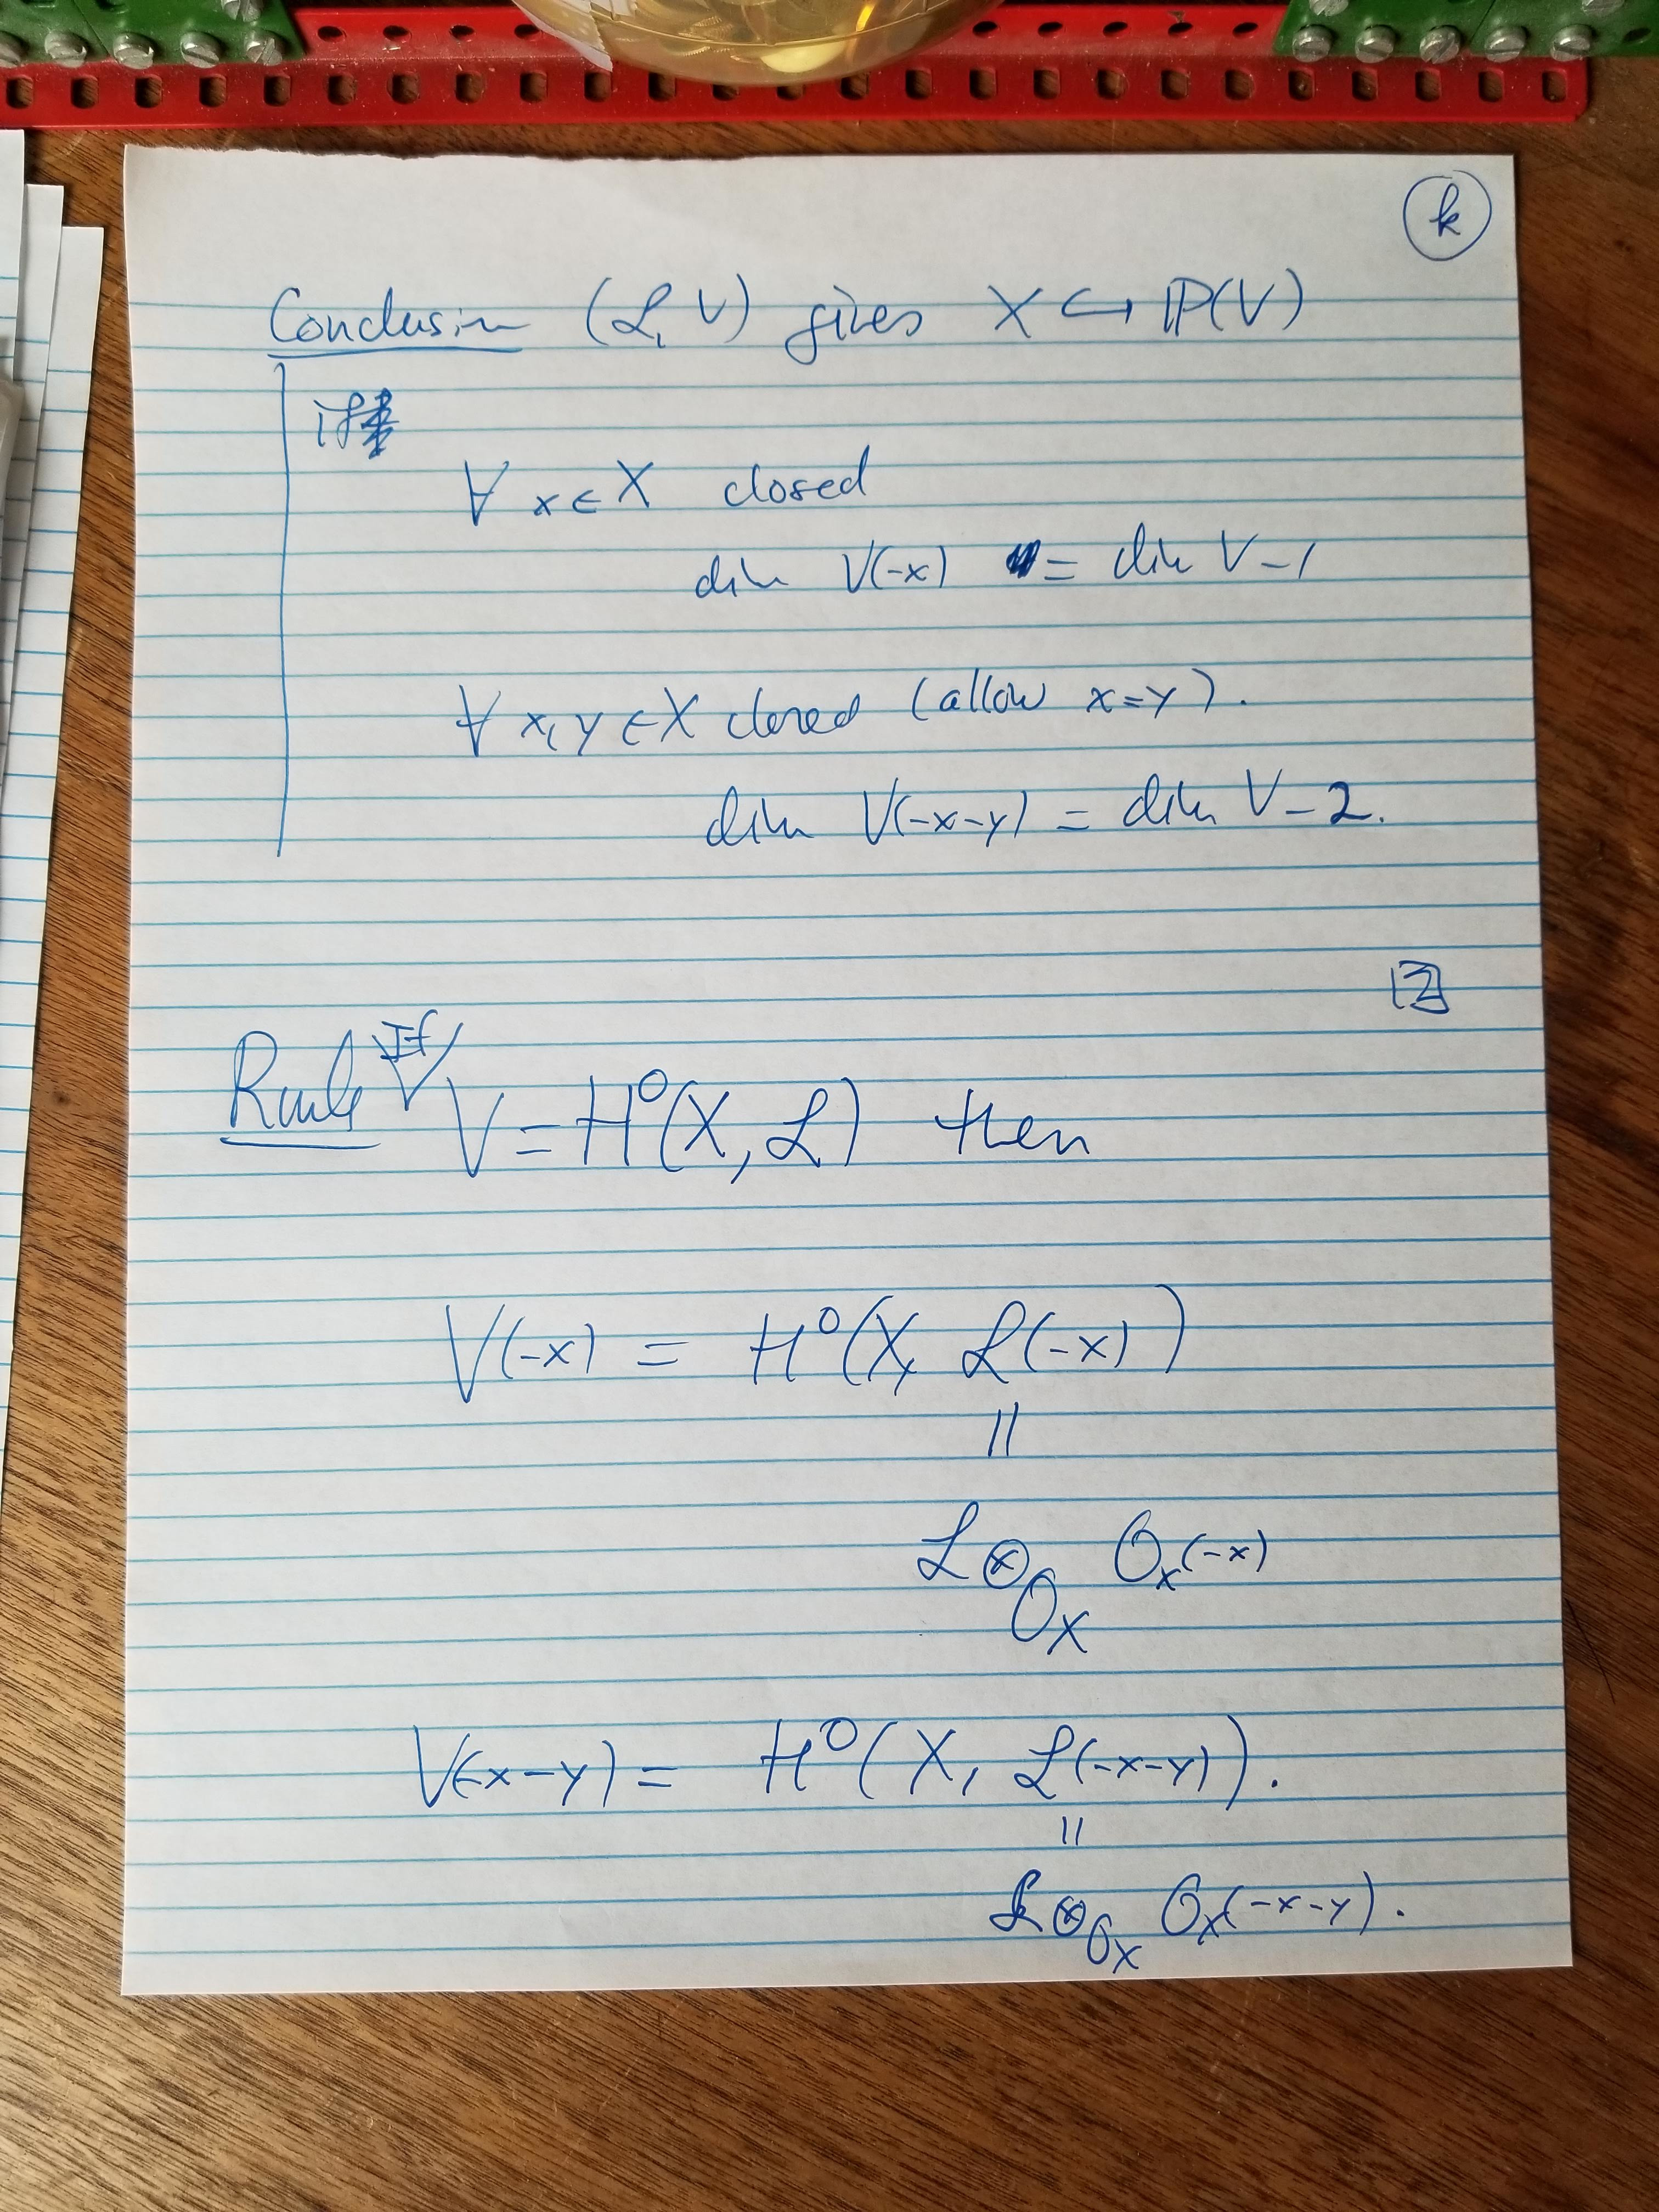 k
Conclusion (ℒ, V) gives X ↪ ℙ(V)
if
∀ x ∈ X closed
dim V(-x) = dim V - 1
∀ x, y ∈ X closed (allow x = y).
dim V(-x-y) = dim V - 2.
Rmk If V = H⁰(X, ℒ) then
V(-x) = H⁰(X, ℒ(-x))
||
ℒ ⊗_{O_X} O_X(-x)
V(-x-y) = H⁰(X, ℒ(-x-y)).
||
ℒ ⊗_{O_X} O_X(-x-y).